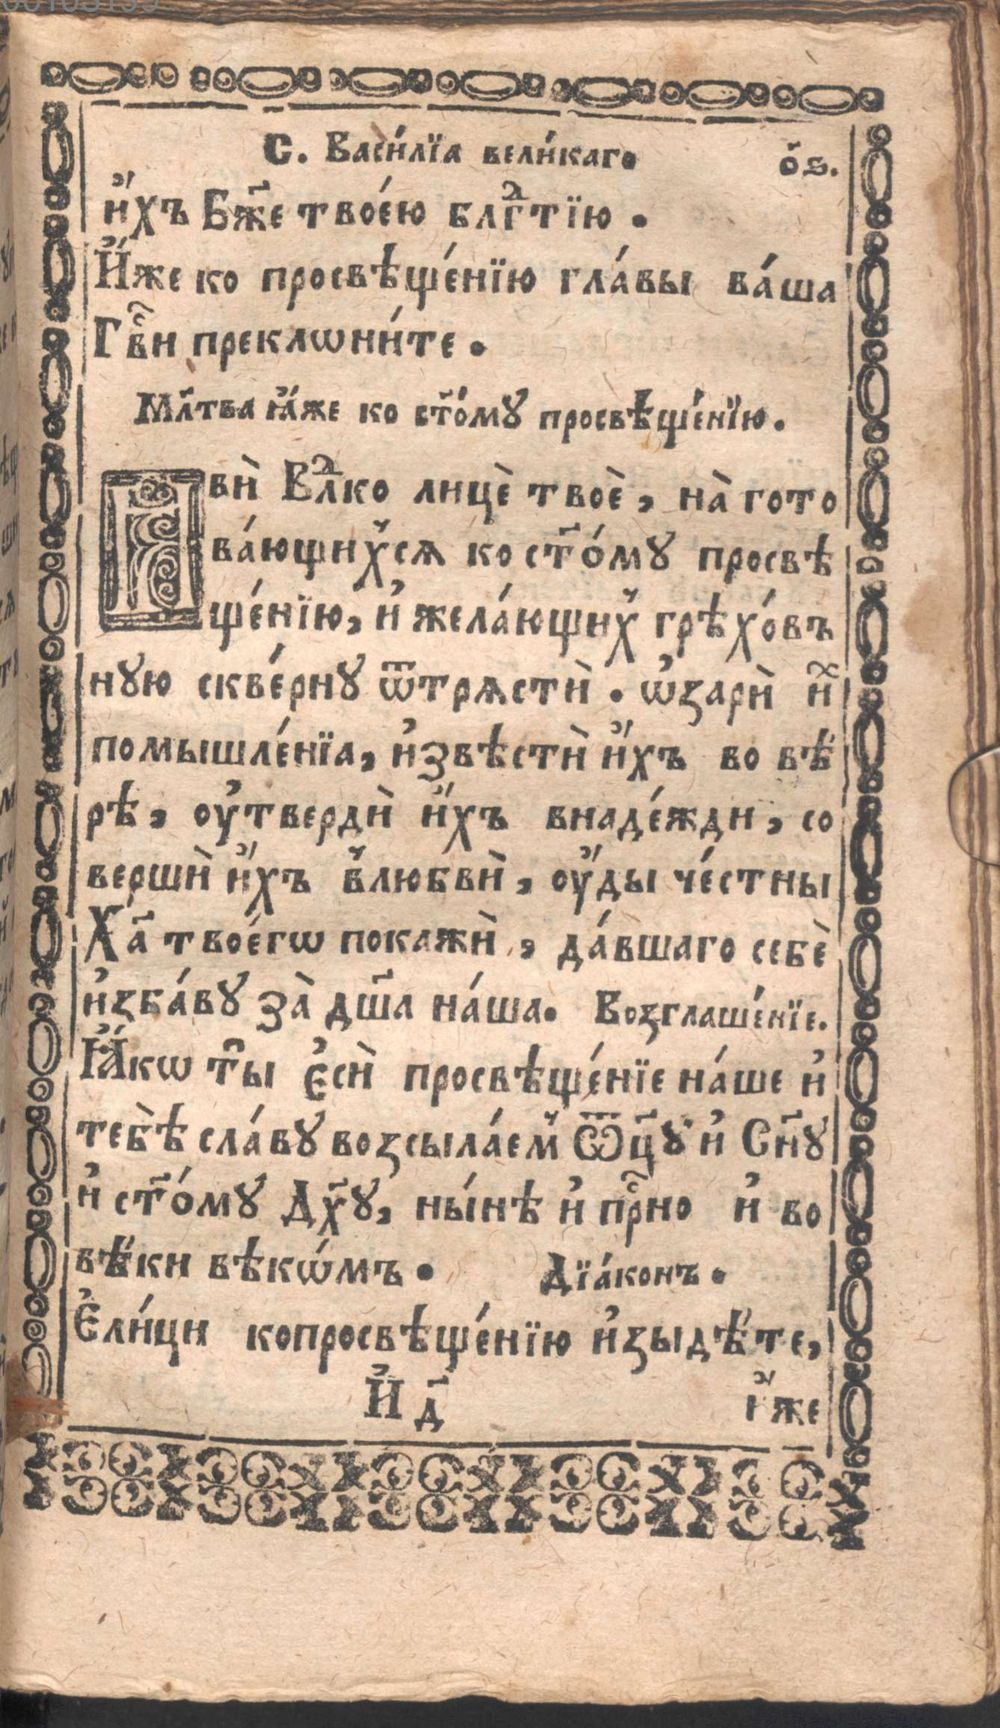 С. Васи́лїа вели́каго о҃ѕ.
и҆́хъ Бж҃е твое́ю блгⷣтїю .
И҆́же ко просвѣще́нїю гла́вы ва́ша
Гвⷭ҇и преклѡни́те .
Мл҃тва ꙗ҆́же ко ст҃о́мꙋ просвѣще́нїю .
Ꙗви̇̀ Влⷣко лицѐ твоѐ , на̀ гото
ва́ющихсѧ ко ст҃о́мꙋ просвѣ
ще́нїю , и҆ жела́ющих грѣхо́въ
нꙋю скве́рнꙋ ѿтрѧсти̇̀ . ѡ҆зари̇̀ иⷯ
помышле́нїа , и҆звѣсти̇̀ и҆́хъ во вѣ́
рѣ , оу҆тверди̇̀ и҆́хъ внаде́жди , со
верши̇̀ и҆́хъ влюбви̇̀ , оу҆́ды че́стны
Хр҃а твоегѡ покажи̇̀ , да́вшаго себѐ
и҆зба́вꙋ за̀ дш҃а на́ша . Возглаше́нїе .
Ꙗ҆́кѡ ты̑ є҆си̇̀ просвѣще́нїе на́ше и҆
тебѣ̀ сла́вꙋ возсыла́ем Ѿц҃ꙋ и҆ Сн҃ꙋ
и҆ ст҃о́мꙋ Дх҃ꙋ , ны́нѣ и҆ прⷭ҇но и҆ во
вѣ́ки вѣкѡ́мъ . Дїа́конъ .
Є҆ли́ци копросвѣще́нїю и҆зыдѣ́те ,
И҆ д҃ и҆́же